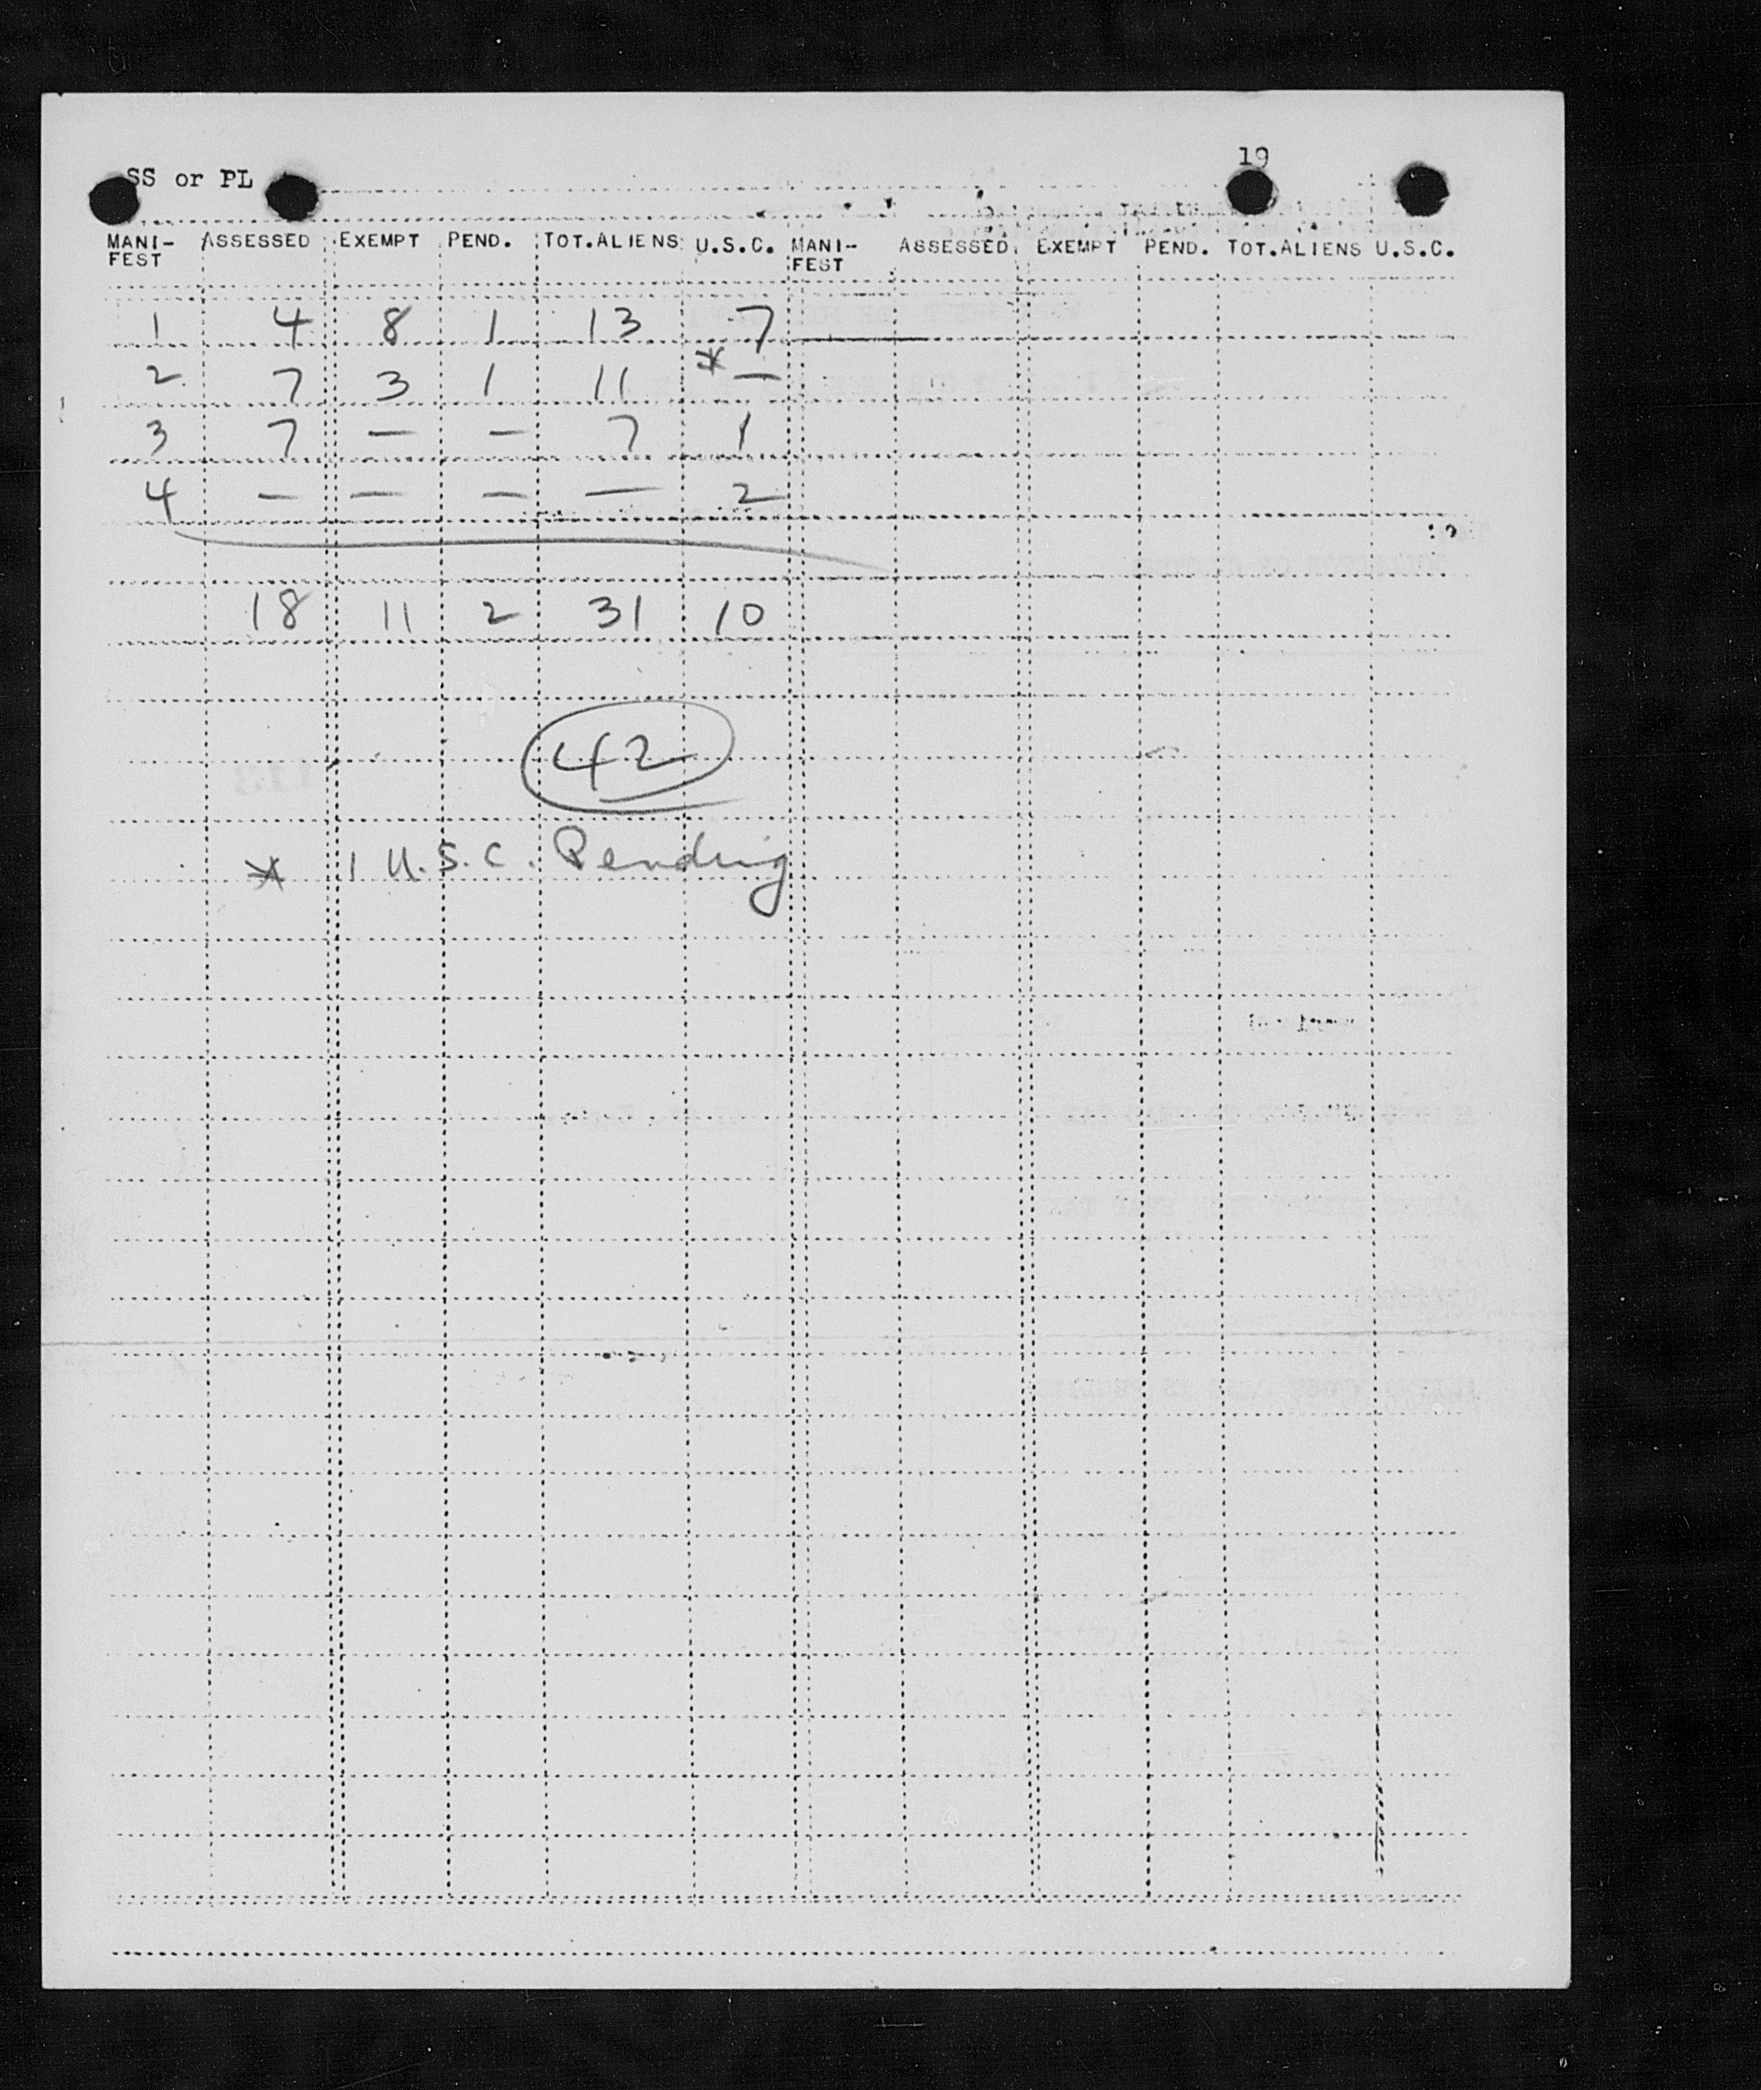 19
SS or PL
MANI- ASSESSED EXEMPT PEND. TOT.ALIENS U.S.C. MANI- ASSESSED EXEMPT PEND. TOT.ALIENS U.S.C.
FEST FEST
1 4 8 1 13 7
2 7 3 1 11 * —
3 7 — — 7 1
4 — — — — 2
18 11 2 31 10
42
* 1 U.S.C. Pending